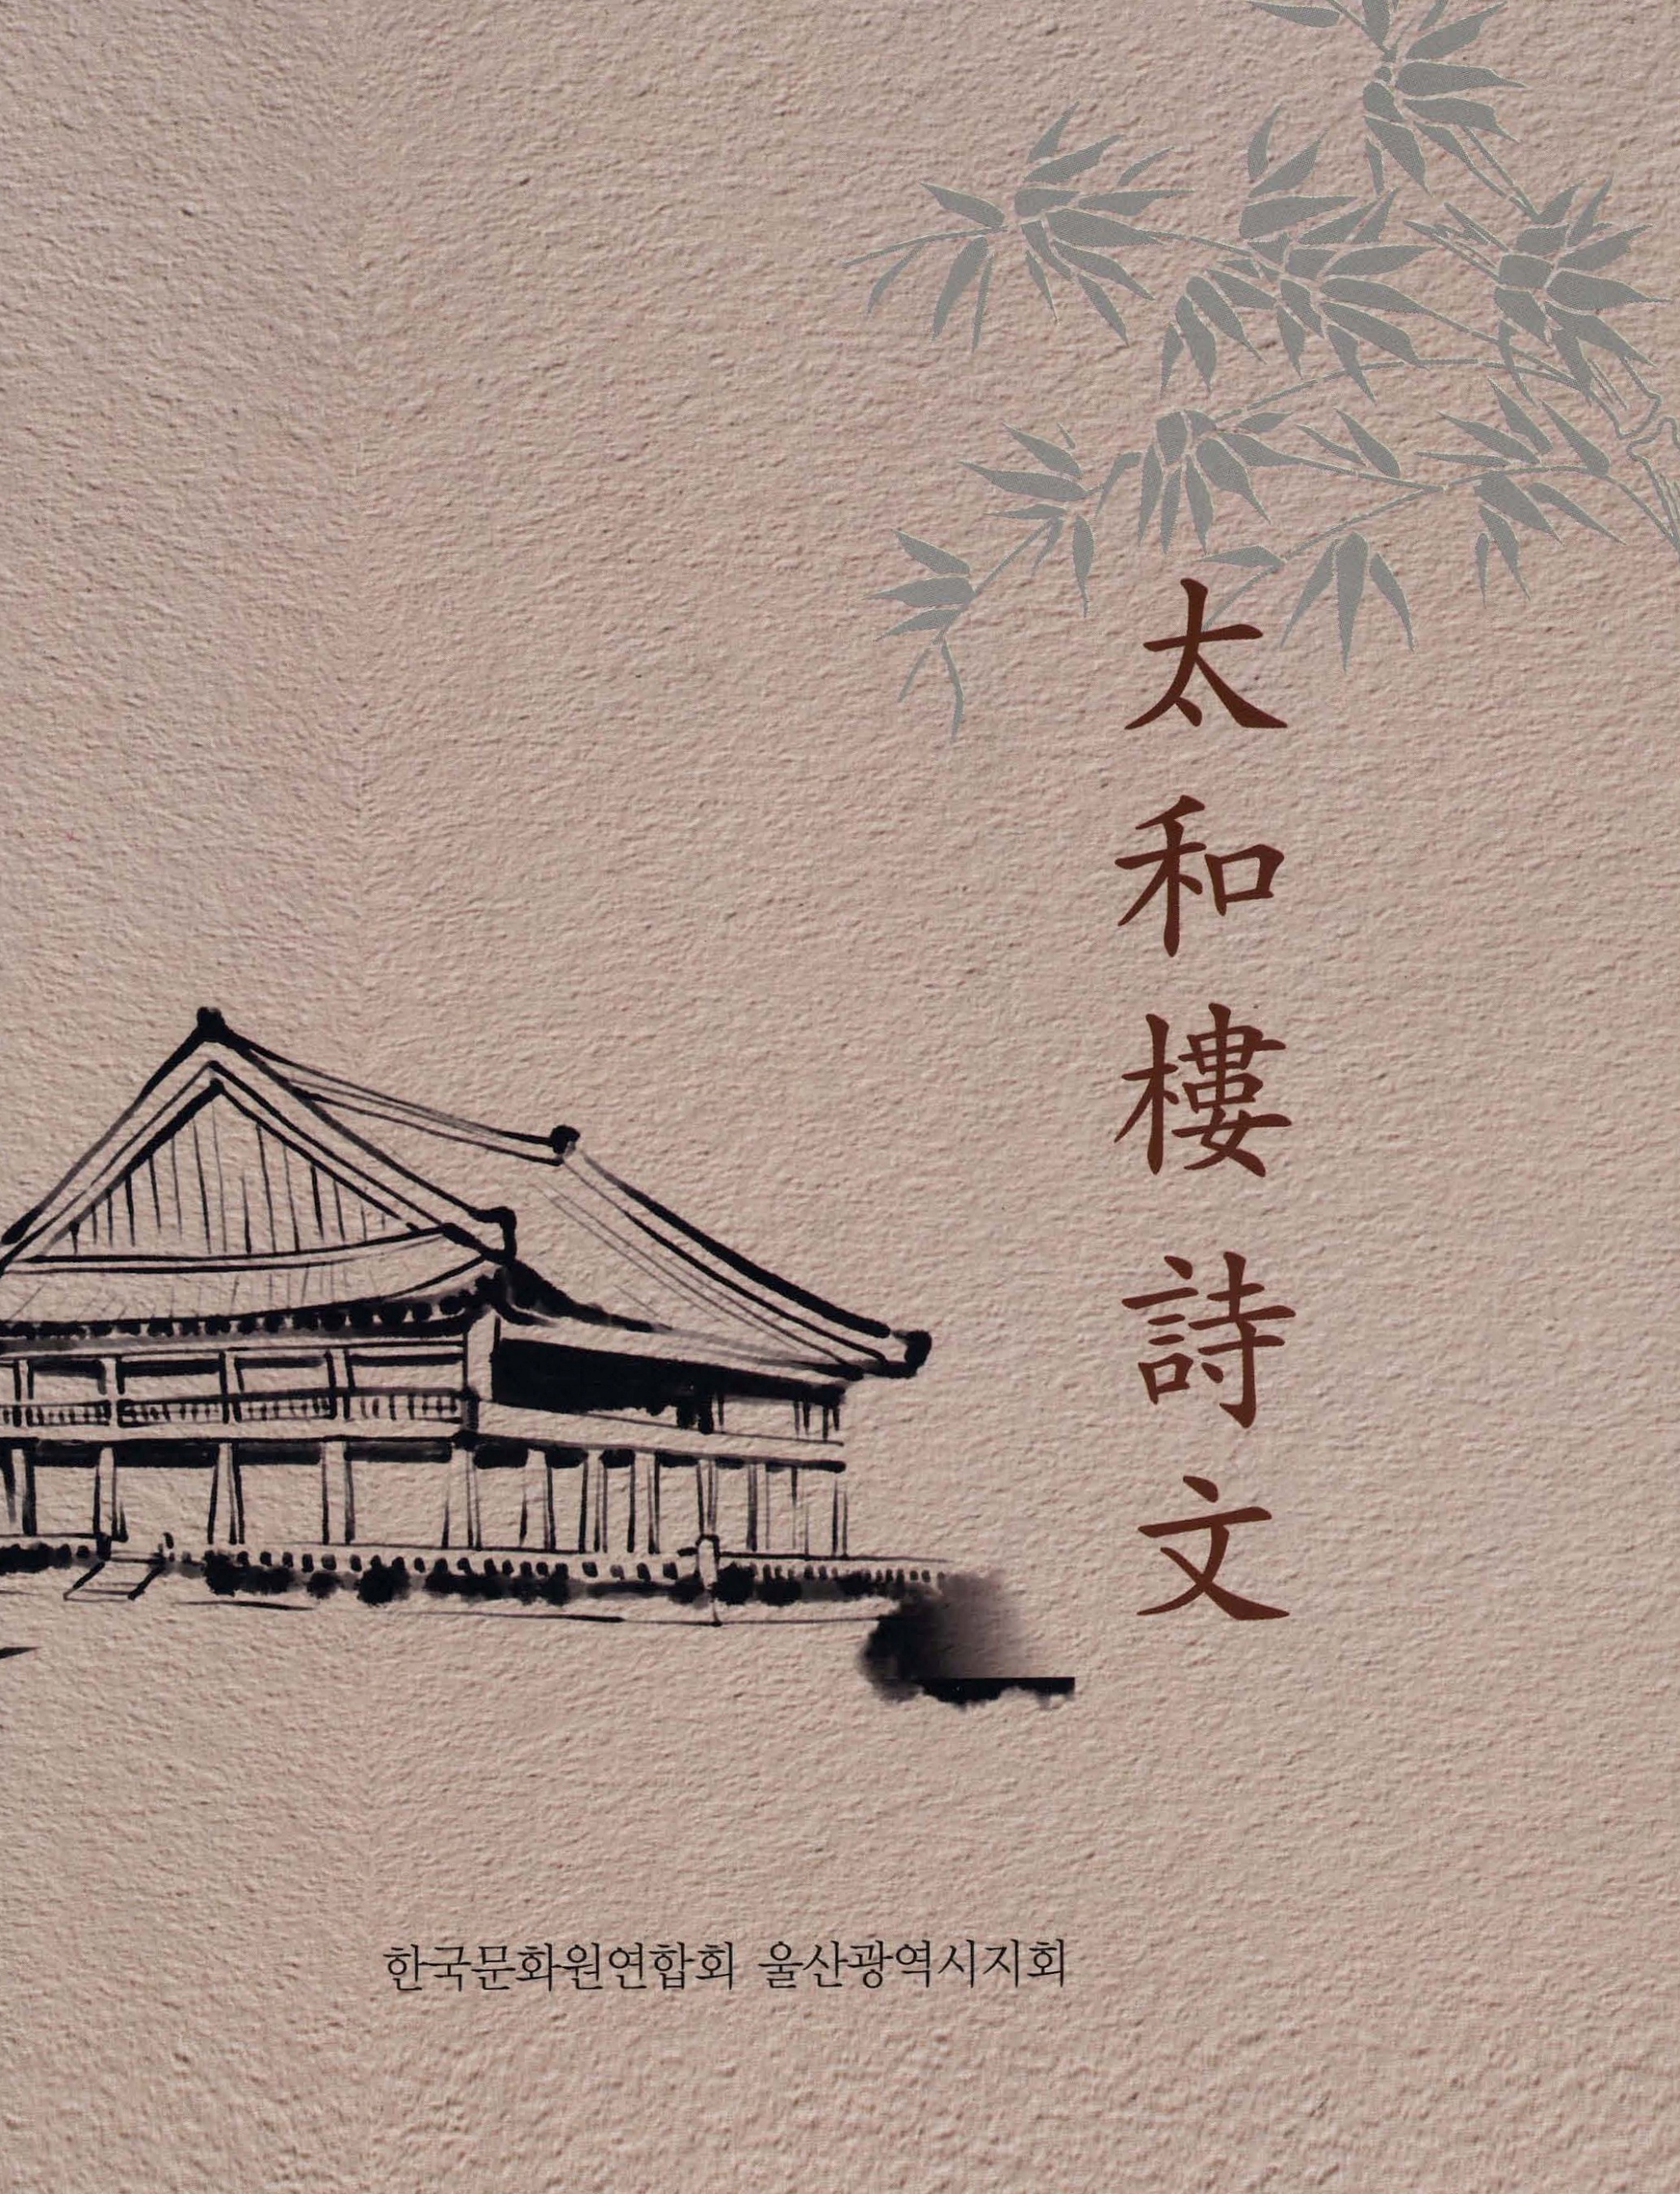 太和樓詩文
한국문화원연합회 울산광역시지회